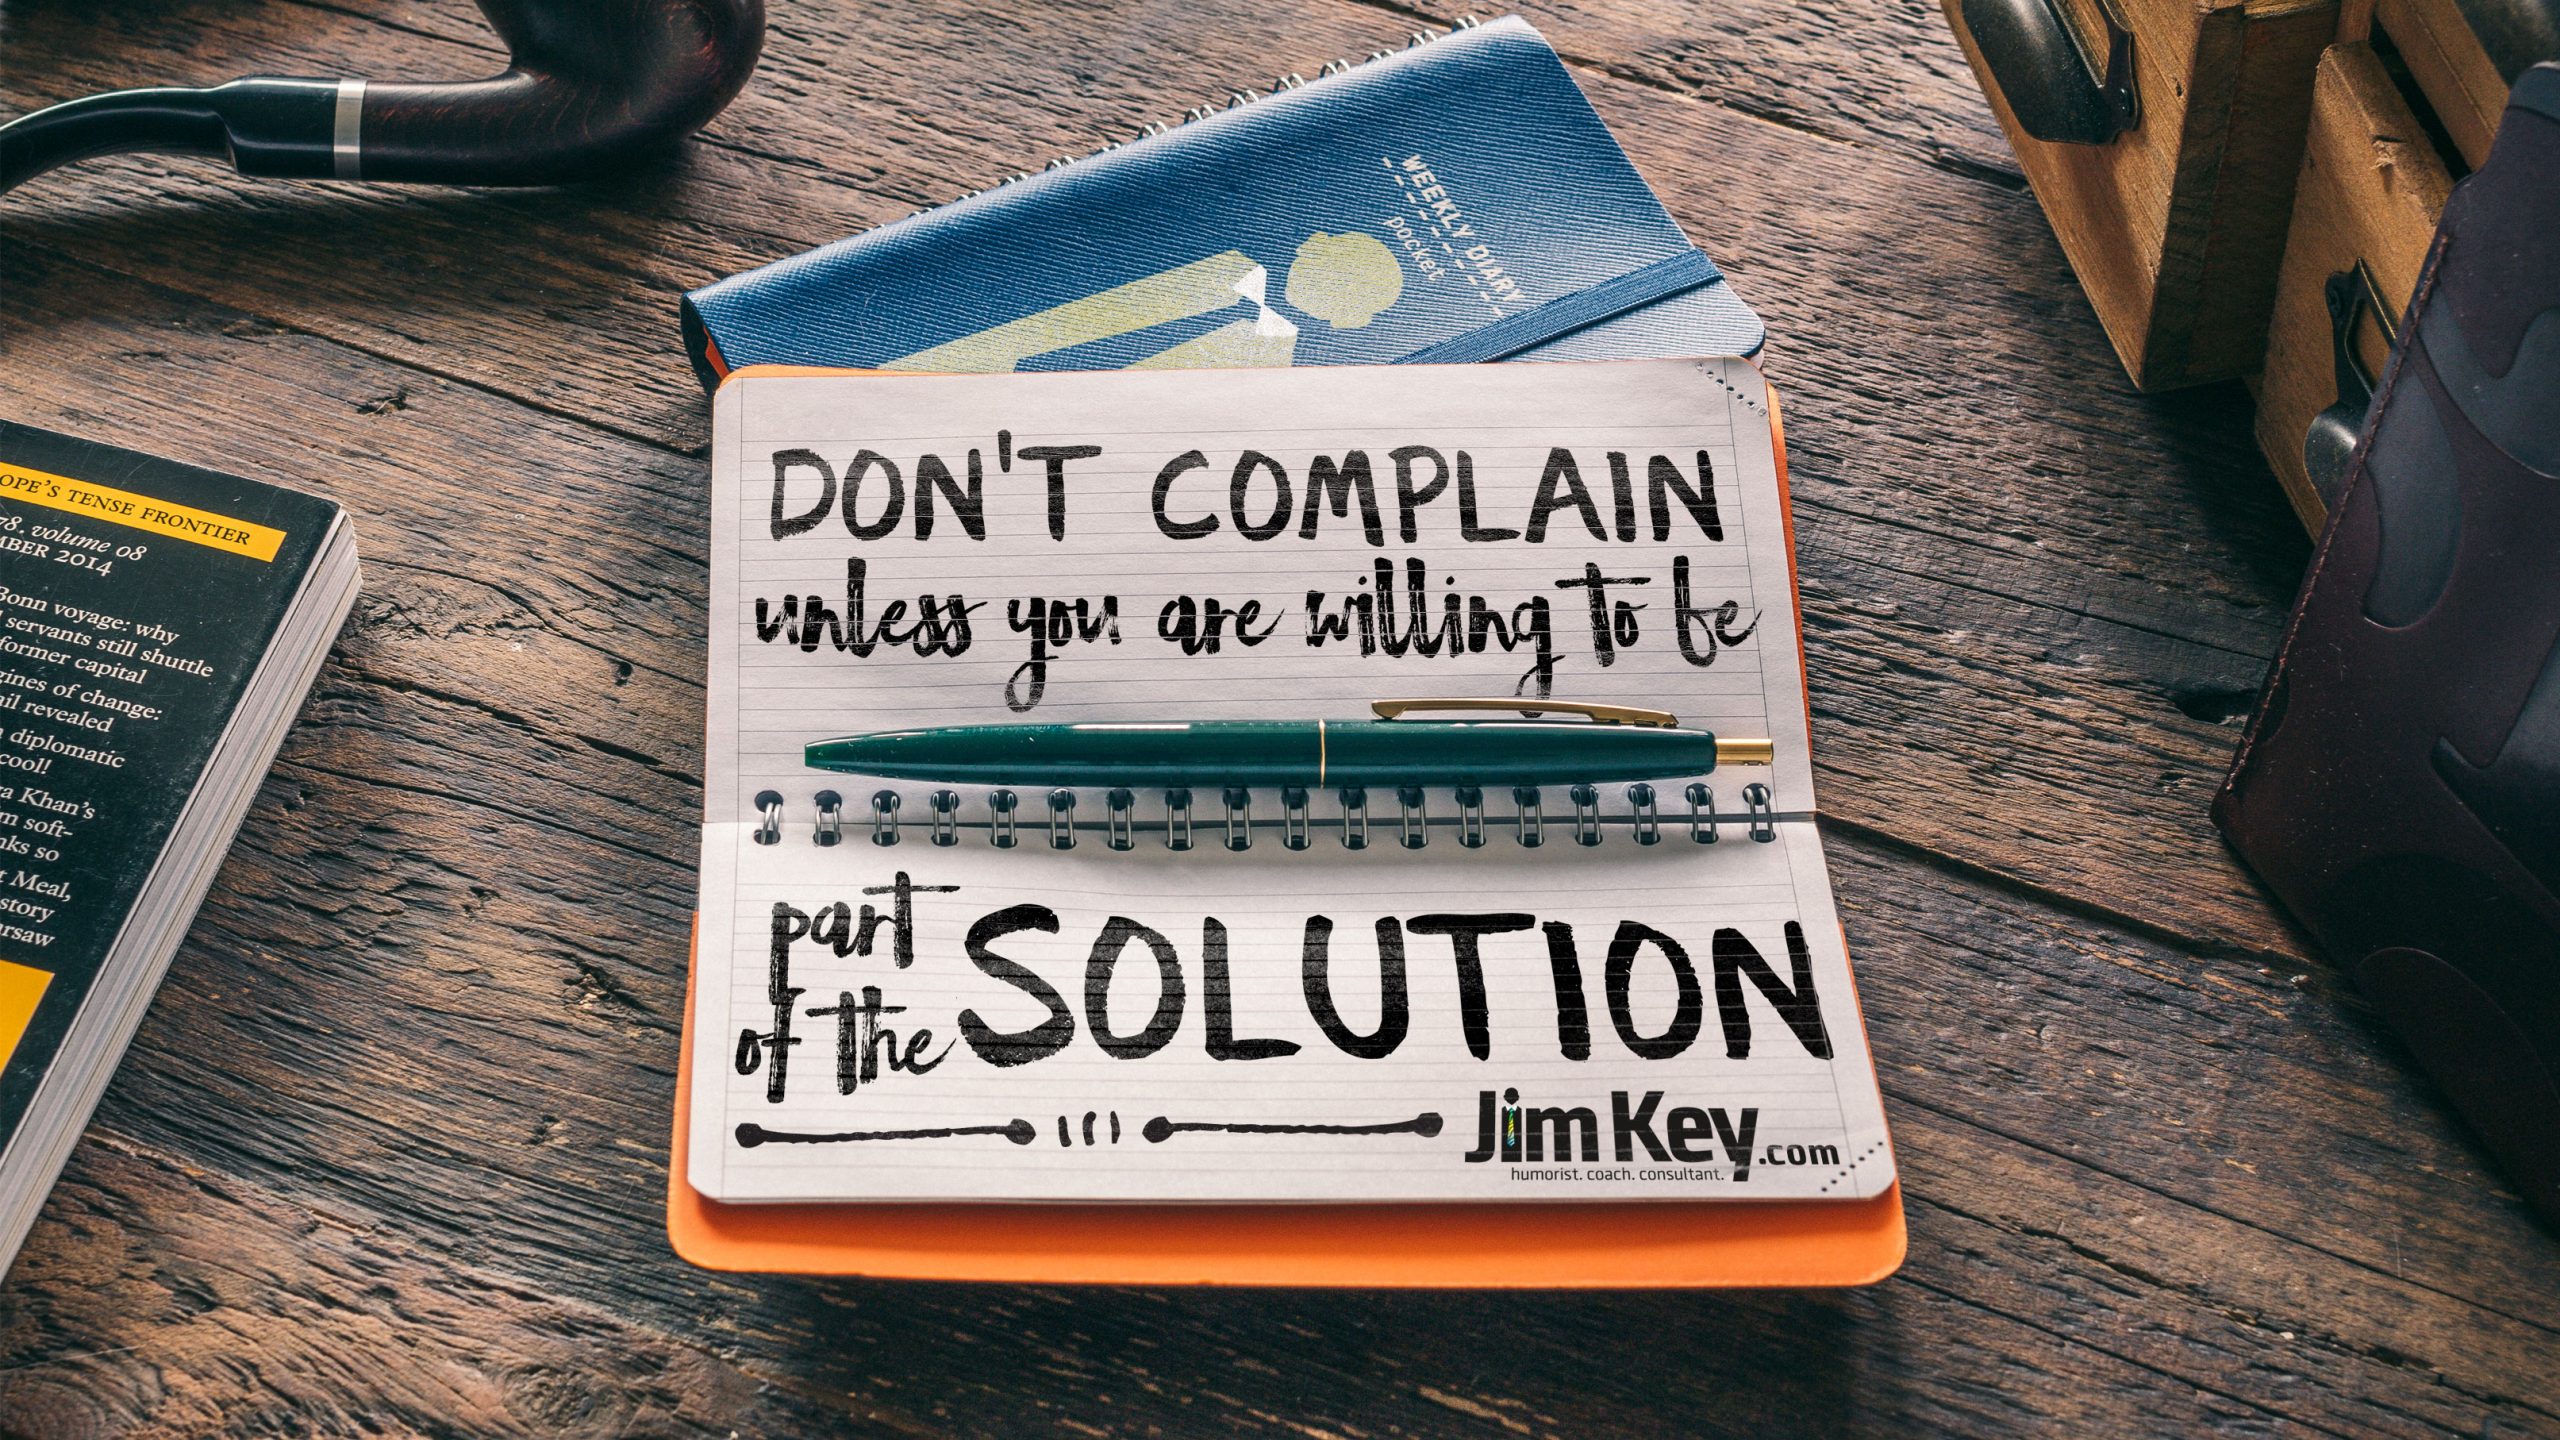 WEEKLY DIARY
pocket
DON'T COMPLAIN
unless you are willing to be
part
of the SOLUTION
Jim Key.com
humorist. coach. consultant.
TENSE FRONTIER
volume 08
2014
Bonn voyage: why
servants still shuttle
former capital
of change:
revealed
diplomatic
cool!
Khan's
soft-
so
Meal,
story